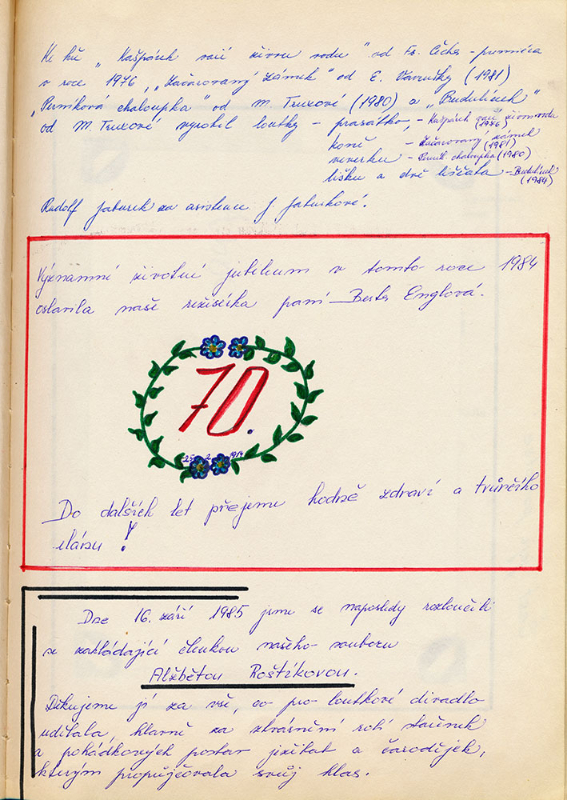 Ke hře „Kašpárek vaří živou vodu" od Fr. Čecha - premiéra
v roce 1976, „Začarovaný zámek" od E. (1981)
„Perníková chaloupka" od M. Truxové (1980) a „Budulínek"
od M. Truxové vyrobil loutky - prasátko, - Kašpárek vaří živou vodu (1976)
koně - Začarovaný zámek (1981)
veverku - Perník. chaloupka (1980)
lišku a dvě liščata - Budulínek (1984)
Rudolf Jaturek za asistence J. Jaturkové.
Významné životní jubileum v tomto roce 1984
oslavila naše režisérka paní Berta Englová.
70.
Do dalších let přejeme hodně zdraví a tvůrčího
elánu!
Dne 16. září 1985 jsme se naposledy rozloučili
se zakládající členkou našeho souboru
Alžbětou Roštíkovou.
Děkujeme jí za vše, co pro loutkové divadlo
udělala, hlavně za ztvárnění rolí stařenek
a pohádkových postav ježibab a čarodějek,
kterým propůjčovala svůj hlas.